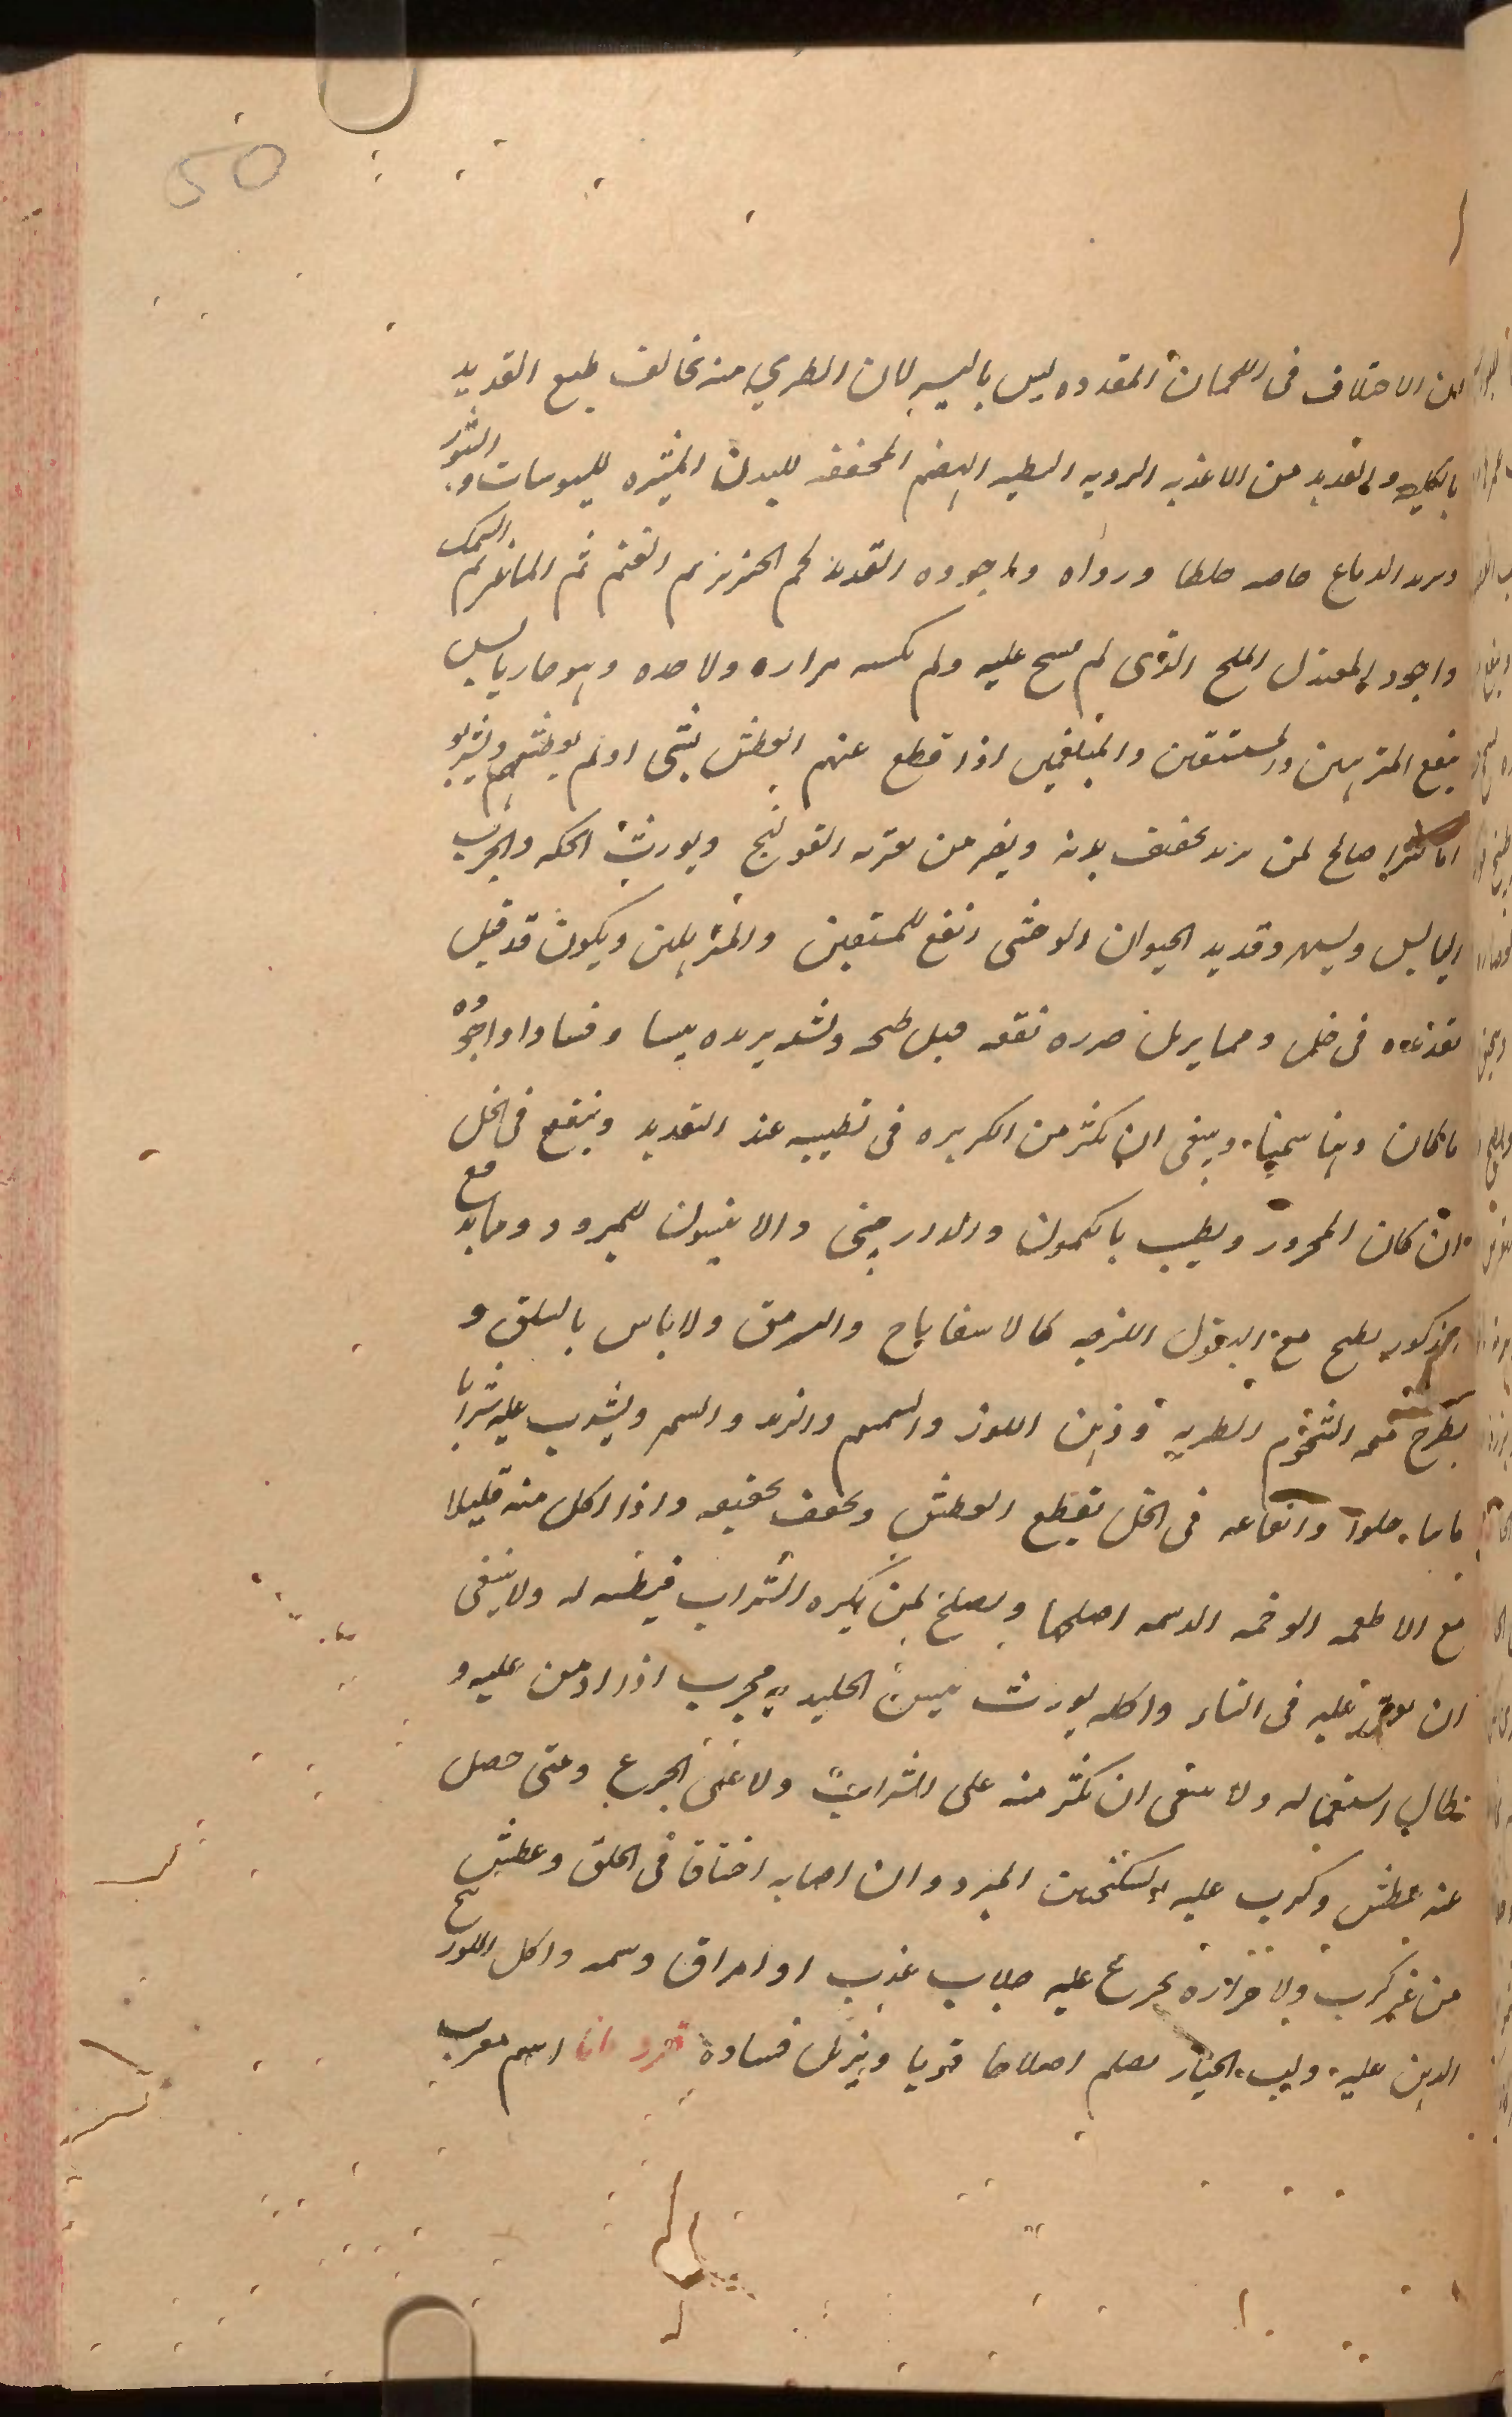 50
لان الاختلاف فى اللحمان المقدده ليس باليسير لان الطري منه يخالف طبع القديد
بالكليه والقديد من الاغذيه الرديه البطيه الهضم المجففه للبدن المثيره لليبوسات و
ويولد الدماغ خاصه خلطا ورداه واجوده القديد لحم الخنزير ثم الغنم ثم الماعز ثم السمك
واجود المعتدل الملح الذى لم يسح عليه ولم يكسبه مراره ولا حده وهو حار يابس
ينفع المترهلين والمستسقين والمبلغمين اذا قطع عنهم العطش بشى اولم يعطشهم ويشربو
اما كثيرا صالح لمن يريد تخفيف بدنه ويضر من يعتريه القولنج ويورث الحكه والجرب
اليابس وقديد الحيوان الوحشى انفع للمستسقين والمترهلين ويكون قد قبل
تقديده فى خل ومما يزيل ضرره نقعه قبل طبخه وشده يزيده يبسا وفسادا واجوده
ما كان دهنا سمينا وينبغى ان يكثر من الكزبره فى تطييبه عند التقديد وينقع فى الخل
ان كان المحرور ويطيب بالكمون والدارچينى والافيون للمبرود ومابه مع
مذكور يطبخ مع البقول اللزجه كالاسفاناخ والسرمق ولا باس بالسلق و
يطرح معه الشحوم الطريه ودهن اللوز والسمسم والزبد والسمن ويشرب عليه شرابا
حلوا وانقاعه فى الخل يقطع العطش ويخفف تجفيفه واذا اكل منه قليلا
مع الاطعمه الوخمه الدسمه اصلحها ويصلح لمن يكره الشراب فيعطشه له ولا ينبغى
ان يعتمد عليه فى الشتاء واكله يورث يبس الجلد مجرب اذا ادمن عليه و
طال استعماله ولا ينبغى ان يكثر منه على الشراب ولا عقب الجوع ومتى حصل
عنه عطش وكرب عليه بالسكنجبين المبرد وان اصابه اختناقا فى الحلق وعطش
من غير كرب ولا حراره تجرع عليه جلاب عذب او امراق دسمه واكل اللوز
الدهن عليه ولب الخيار يصلحه اصلاحا قويا ويزيل فساده قردمانا اسم معرب